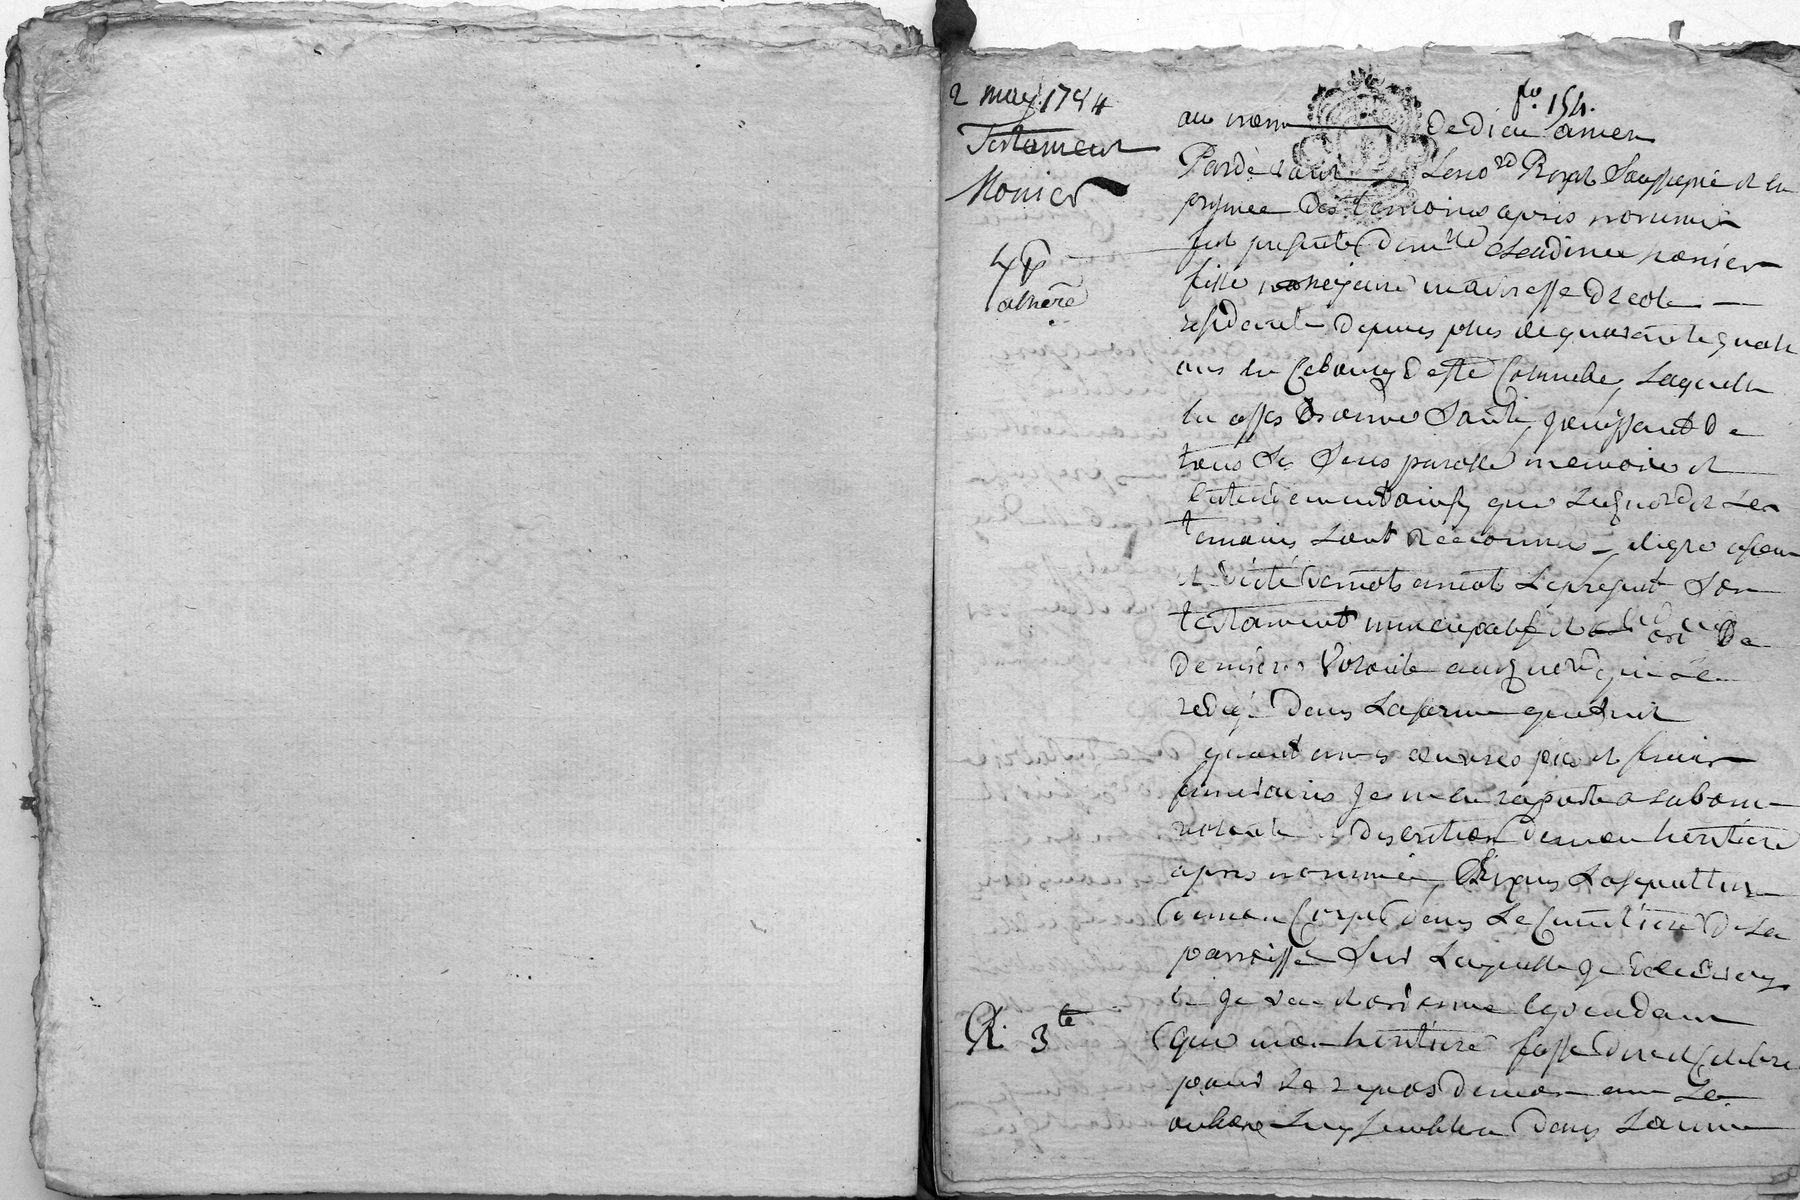 2 may 1784
Testament
Monier
fo. 154.
au nom de dieu amen
Pardevant Le no.re Royal Soussigné et en
presence des temoins apres nommés
fut presente dem.lle Claudine monier
fille majeure maitresse d'ecole
residente depuis plus de quarante quatre
ans en Ce bourg de Ste Colombe, Laquelle
en asses bonne Santé, jouissant de
tous Ses Sens parolle memoire et
entendement ainsy que Led. no.re et Les
temoins L'ont reconnu
et dicté mots a mots Le present Son
testament nuncupatif et de
derniere Volonté aud. no.re qui L'a
redigé dans La forme que Suit
quant a mes œuvres pies et frais
funeraires je m'en raporte a la bonne
volonté et discretion de mon heritiere
apres nommée, La sepulture
de mon Corps dans Le Cimetiere de La
parroisse Sur Laquelle je decederay
et je veux et ordonne Cependant
que mon heritiere fasse dire et Celebrer
pour Le repos de mon ame Le
nombre Luy Semblera dans L'année
R. 3 te